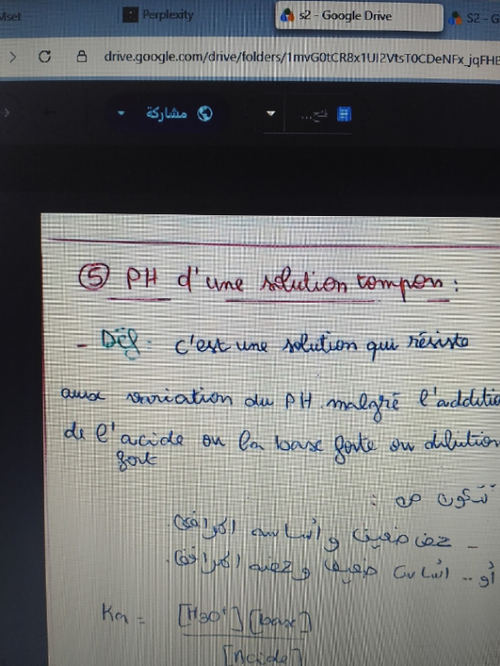 Mset
Perplexity
s2 - Google Drive
S2 - G
drive.google.com/drive/folders/1mvG0tCR8x1UI2VtsT0CDeNFx_jqFHE
مشاركة
فتح...
⑤ PH d'une solution tompon :
- Déf : c'est une solution qui résiste
aux variation du PH malgré l'additio
de l'acide ou la base forte ou dilution
fort
تتكون من :
- حمض ضعيف وأساسه المرافق
أو .. أساس ضعيف وحمضه المرافق.
Ka = [H3O+][base]
[Acide]